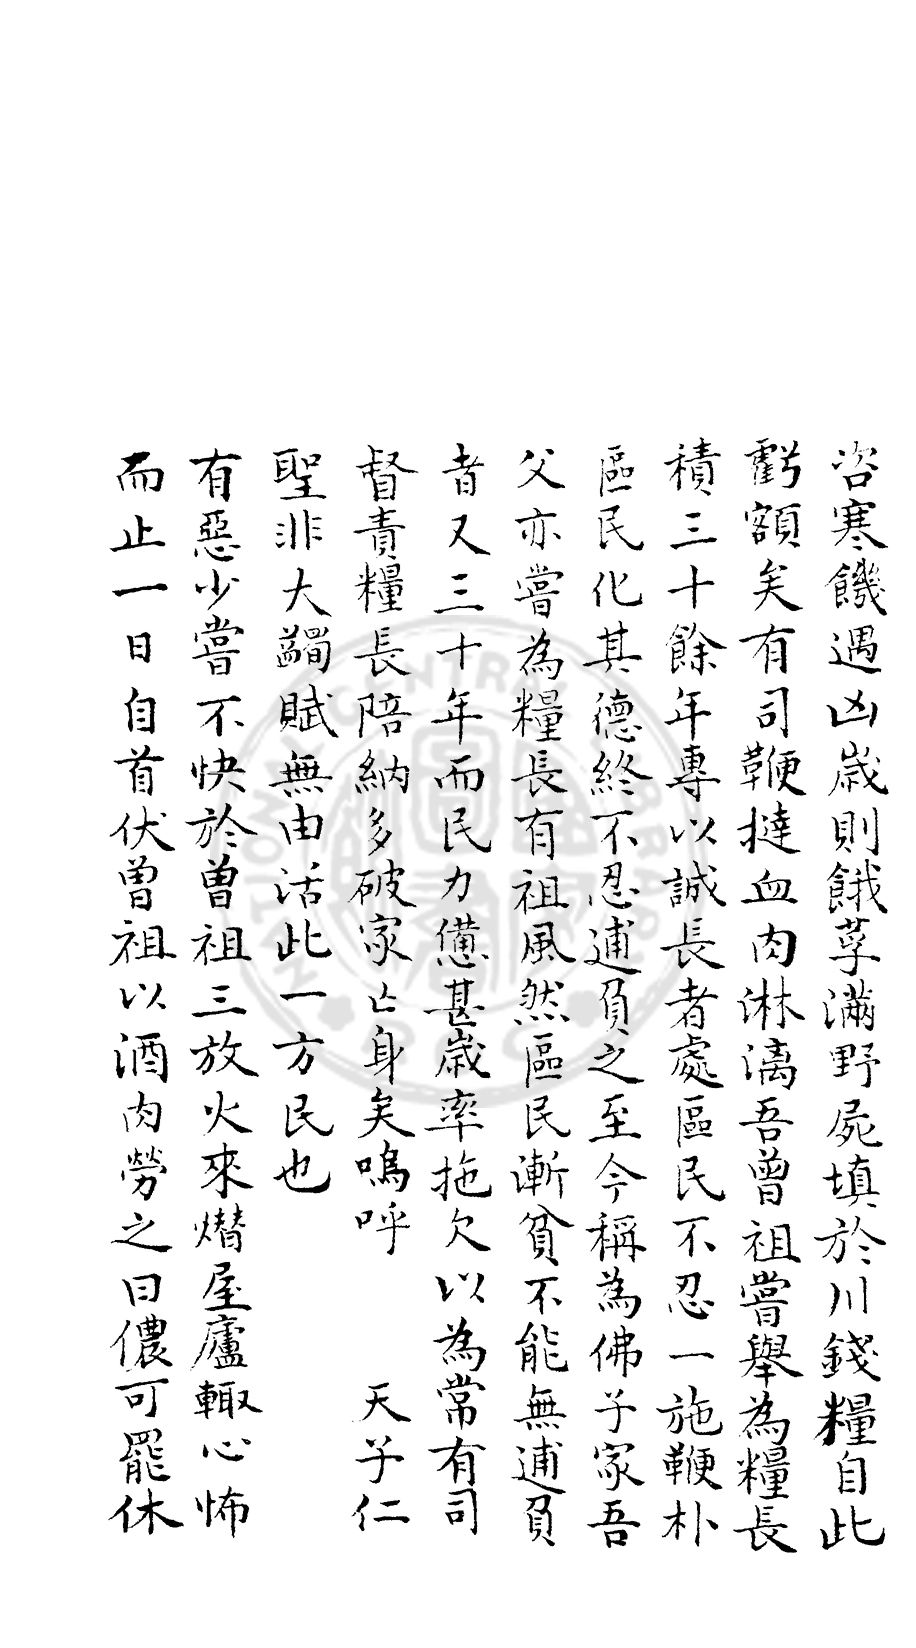 咨寒饑遇凶歲則餓莩滿野屍填於川錢糧自此
虧額矣有司鞭撻血肉淋漓吾曾祖嘗舉為糧長
積三十餘年專以誠長者處區民不忍一施鞭朴
區民化其德終不忍逋負之至今稱為佛子家吾
父亦嘗為糧長有祖風然區民漸貧不能無逋負
者又三十年而民力憊甚歲率拖欠以為常有司
督責糧長陪納多破家亡身矣嗚呼 天子仁
聖非大蠲賦無由活此一方民也
有惡少嘗不快於曾祖三放火來熸屋廬輙心怖
而止一日自首伏曾祖以酒肉勞之曰儂可罷休
NATIONAL CENTRAL LIBRARY